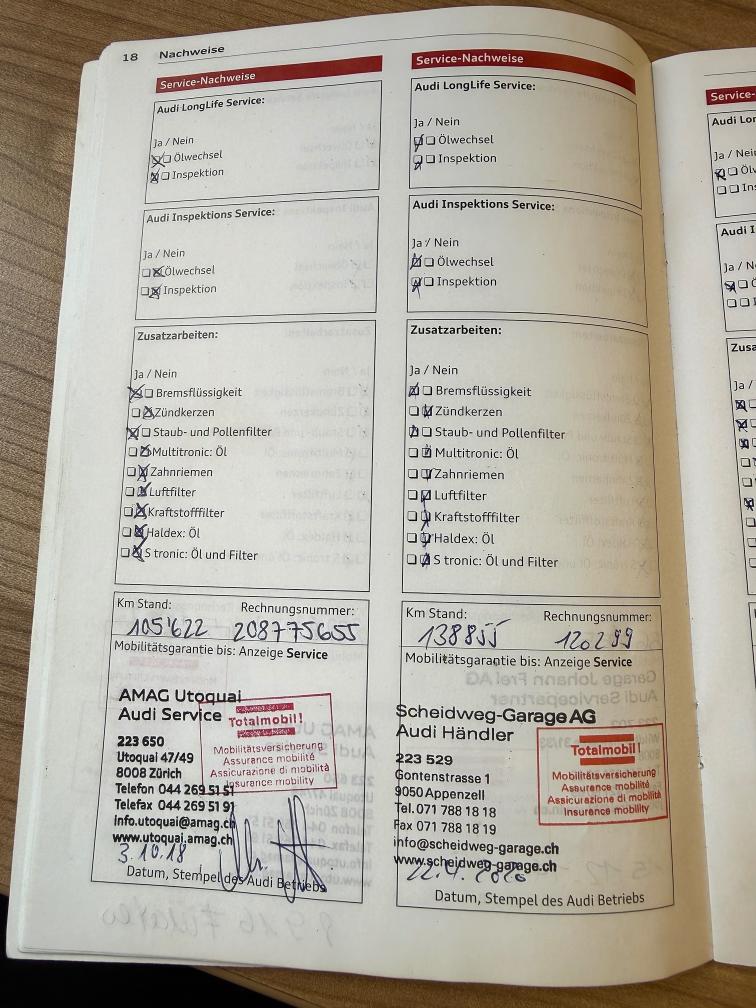 18 Nachweise
Service-Nachweise
Audi LongLife Service:
Ja / Nein
Ölwechsel
Inspektion
Audi Inspektions Service:
Ja / Nein
Ölwechsel
Inspektion
Zusatzarbeiten:
Ja / Nein
Bremsflüssigkeit
Zündkerzen
Staub- und Pollenfilter
Multitronic: Öl
Zahnriemen
Luftfilter
Kraftstofffilter
Haldex: Öl
S tronic: Öl und Filter
Km Stand: Rechnungsnummer:
105'622 208775655
Mobilitätsgarantie bis: Anzeige Service
AMAG Utoquai
Audi Service
223 650
Utoquai 47/49
8008 Zürich
Telefon 044 269 51 51
Telefax 044 269 51 91
info.utoquai@amag.ch
www.utoquai.amag.ch
Totalmobil!
Mobilitätsversicherung
Assurance mobilité
Assicurazione di mobilità
Insurance mobility
3.10.18
Datum, Stempel des Audi Betriebs
Service-Nachweise
Audi LongLife Service:
Ja / Nein
Ölwechsel
Inspektion
Audi Inspektions Service:
Ja / Nein
Ölwechsel
Inspektion
Zusatzarbeiten:
Ja / Nein
Bremsflüssigkeit
Zündkerzen
Staub- und Pollenfilter
Multitronic: Öl
Zahnriemen
Luftfilter
Kraftstofffilter
Haldex: Öl
S tronic: Öl und Filter
Km Stand: Rechnungsnummer:
138855 120299
Mobilitätsgarantie bis: Anzeige Service
Scheidweg-Garage AG
Audi Händler
223 529
Gontenstrasse 1
9050 Appenzell
Tel. 071 788 18 18
Fax 071 788 18 19
info@scheidweg-garage.ch
www.scheidweg-garage.ch
Totalmobil!
Mobilitätsversicherung
Assurance mobilité
Assicurazione di mobilità
Insurance mobility
22.4.2020
Datum, Stempel des Audi Betriebs
Service-
Audi Lon
Ja / Nein
Ölw
Ins
Audi I
Ja / N
Zusa
Ja /